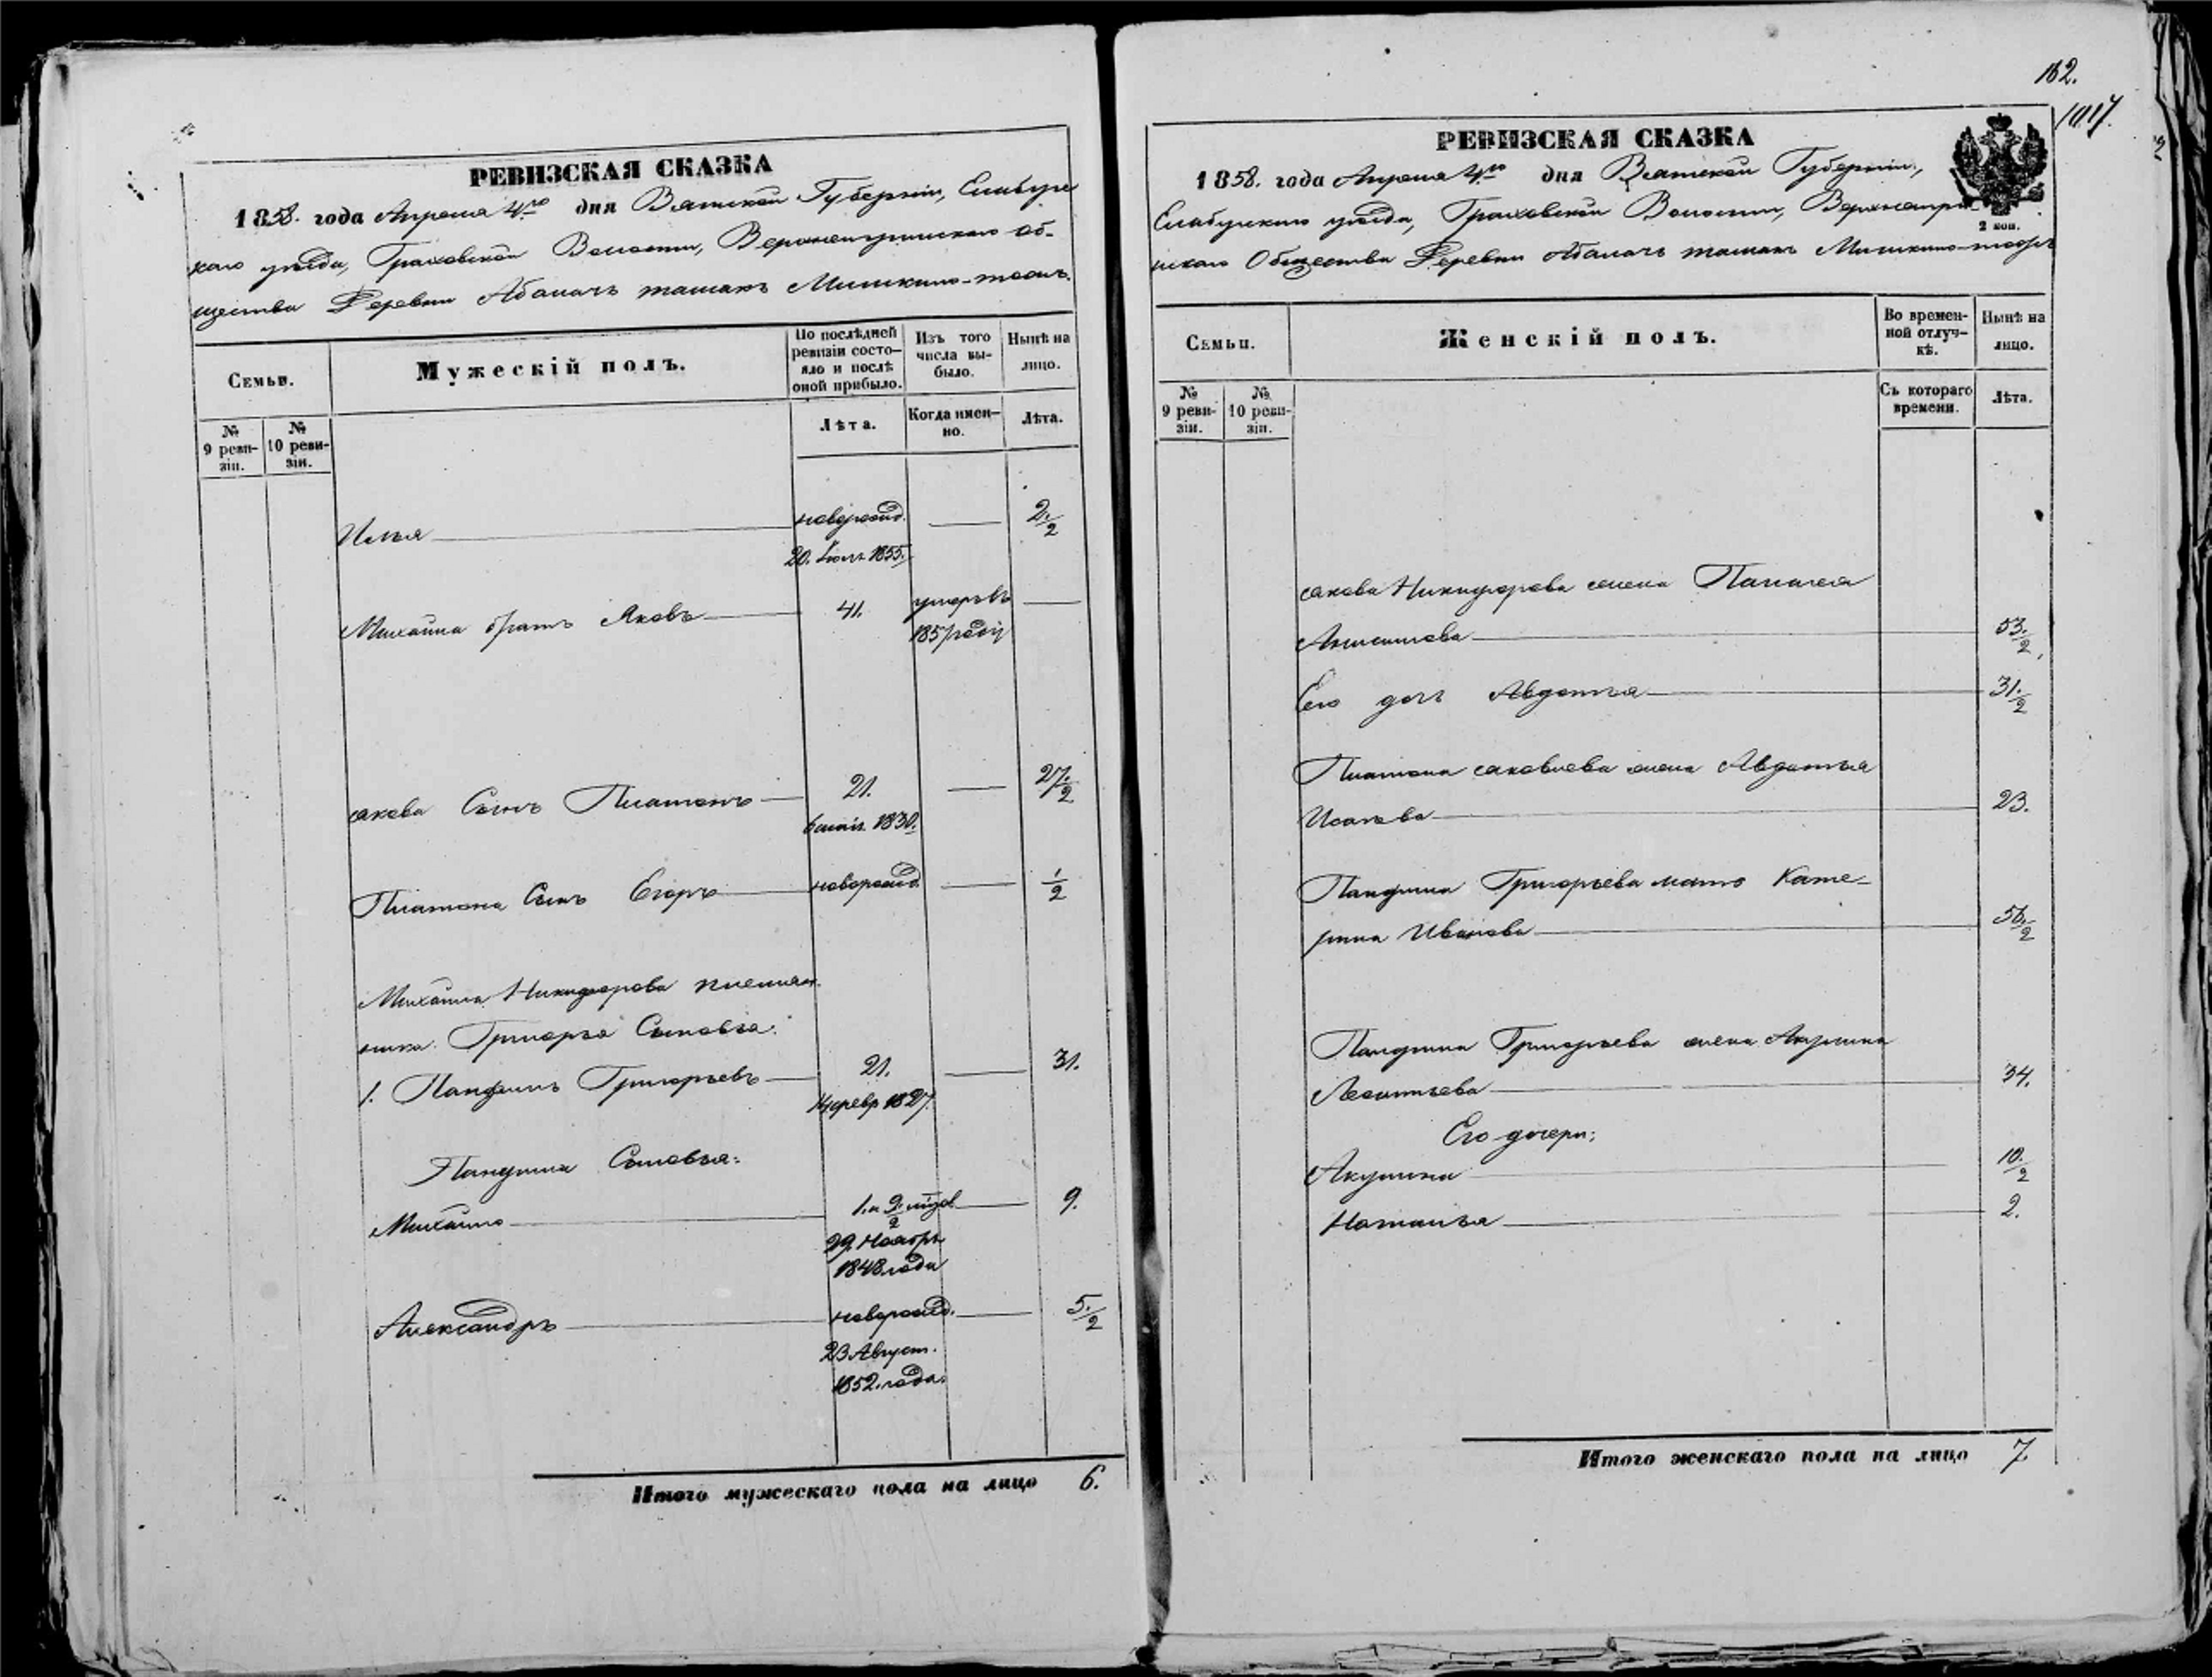 РЕВИЗСКАЯ СКАЗКА
1858. года Апреля 4го дня Вятской Губернiи, Елабуж
скаго уѣзда, Граховской Волости, об-
щества Деревни тожъ.
Семьи.
Мужескiй полъ.
По послѣдней ревизiи состо-яло и послѣ оной прибыло.
Изъ того числа вы-было.
Нынѣ на лицо.
№ 9 реви-зiи.
№ 10 реви-зiи.
Лѣта.
Когда имен-но.
Лѣта.
Илья новорожд. — 2./2
20. Iюля 1855.
Михайла братъ Яковъ 41. умеръ въ —
1857 году
Якова Сынъ Платонъ 21. — 27./2
6 1830.
Платона Сынъ Егоръ новорожд. — 1/2
Михайла Никифорова племян-
ника Григорья Сыновья:
1. Панфилъ Григорьевъ 21. — 31.
14 февр 1827.
Панфила Сыновья:
Михайло 1. и 2./2 — 9.
29. Ноябрь
1848 года
Александръ новорожд. — 5./2
23 Август.
1852. года.
Итого мужескаго пола на лицо 6.
162.
1017.
РЕВИЗСКАЯ СКАЗКА
1858. года Апреля 4го дня Вятской Губернiи,
Елабужскаго уѣзда, Граховской Волости,
2 коп.
скаго Общества Деревни
Семьи.
Женскiй полъ.
Во времен-ной отлуч-кѣ.
Нынѣ на лицо.
№ 9 реви-зiи.
№ 10 реви-зiи.
Съ котораго времени.
Лѣта.
Якова Никифорова жена Палагея
Анисимова 53./2
Его дочь Авдотья 31./2
Платона Яковлева жена Авдотья
Исакова 23.
Панфила Григорьева мать Кате-
рина Иванова 56./2
Панфила Григорьева жена Акулина
Леонтьева 34.
Его дочери:
Акулина 10./2
Наталья 2.
Итого женскаго пола на лицо 7.